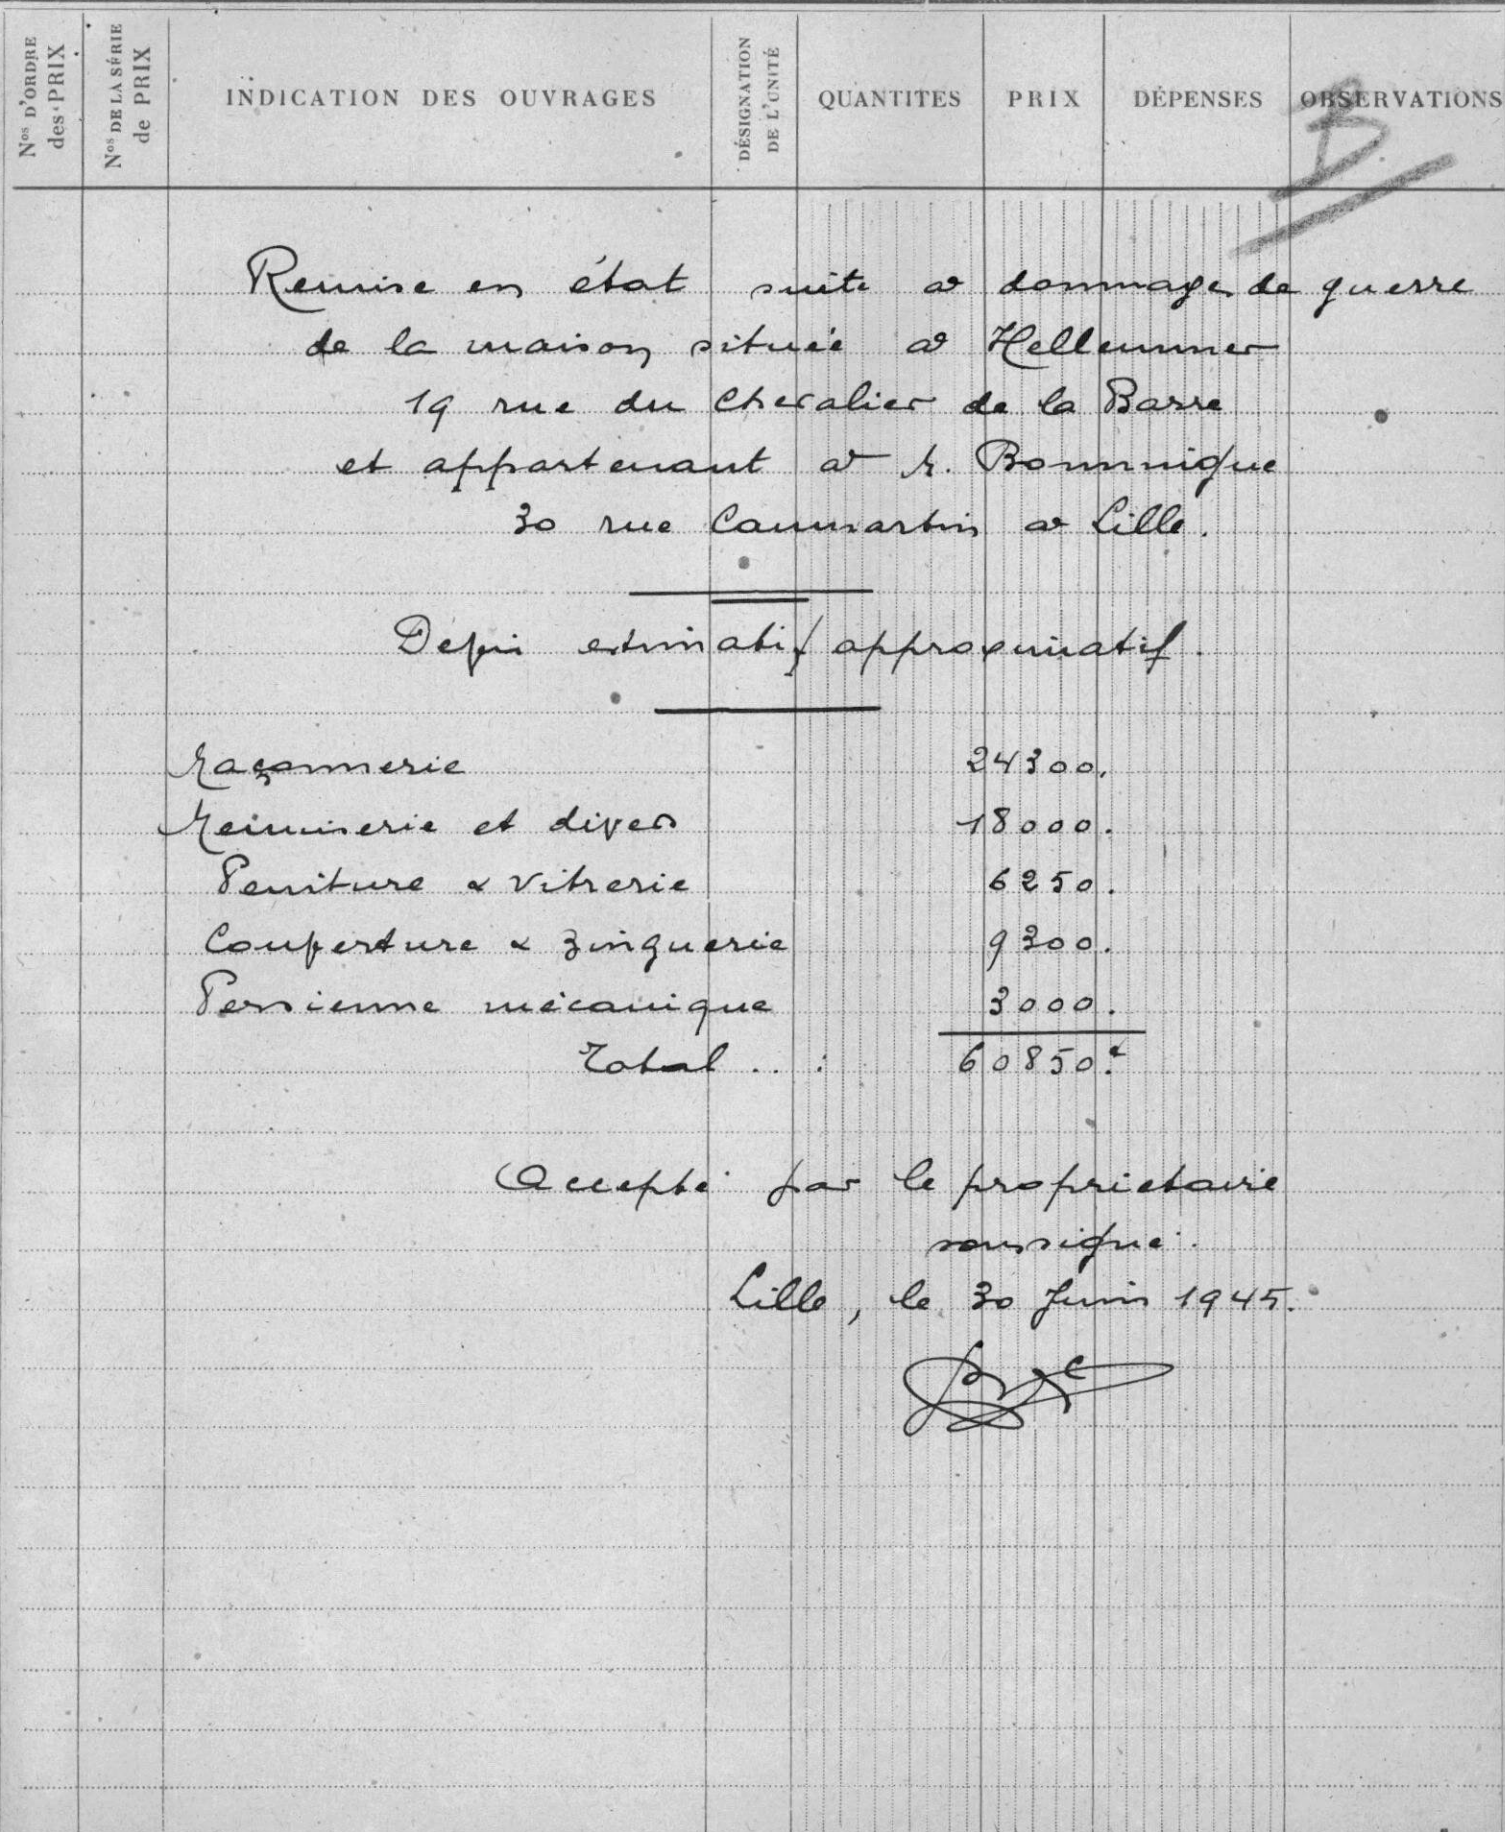 Nos D'ORDRE des PRIX | Nos DE LA SÉRIE de PRIX | INDICATION DES OUVRAGES | DÉSIGNATION DE L'UNITÉ | QUANTITES | PRIX | DÉPENSES | OBSERVATIONS
B
Remise en état suite à dommages de guerre
de la maison située à Hellemmes
19 rue du Chevalier de la Barre
et appartenant à M. Bommnique
30 rue Caumartin à Lille.
Devis estimatif approximatif.
Maçonnerie 24300.
Menuiserie et divers 18000.
Peinture & Vitrerie 6250.
Couverture & zinguerie 9300.
Persienne mécanique 3000.
Total .. : 60850.
Accepté par le propriétaire
soussigné.
Lille, le 30 Juin 1945.